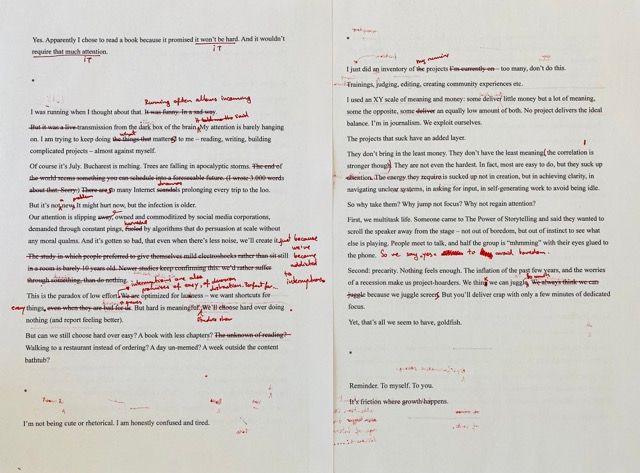 Yes. Apparently I chose to read a book because it promised it won't be hard. And it wouldn't
IT
require that much attention.
IT
*
Running often allows incoming
I was running when I thought about that. It was funny. In a sad way.
But it was a live transmission from the dark box of the brain. My attention is barely hanging
on. I am trying to keep doing the things that matters to me – reading, writing, building
what
complicated projects – almost against myself.
Of course it's July. Bucharest is melting. Trees are falling in apocalyptic storms. The end of
the world seems something you can schedule into a foreseeable future. (I wrote 3,000 words
about that. Sorry.) There are so many Internet scandals prolonging every trip to the loo.
dramas
problem
But it's not new. It might hurt now, but the infection is older.
Our attention is slipping away, owned and commoditized by social media corporations,
demanded through constant pings, fooled by algorithms that do persuasion at scale without
any moral qualms. And it's gotten so bad, that even when there's less noise, we'll create it just because
we've
The study in which people preferred to give themselves mild electroshocks rather than sit still
became
addicted
to
interruptions
in a room is barely 10 years old. Newer studies keep confirming this: we'd rather suffer
through something, than do nothing.
interruptions are also
promises of easy, of dreams
of distraction. Perfect for
This is the paradox of low effort. We are optimized for laziness – we want shortcuts for
everything, even when they are bad for us. But hard is meaningful. We'll choose hard over doing
nothing (and report feeling better).
Studies show
But can we still choose hard over easy? A book with less chapters? The unknown of reading?
Walking to a restaurant instead of ordering? A day un-memed? A week outside the content
bathtub?
*
I'm not being cute or rhetorical. I am honestly confused and tired.
*
my running
I just did an inventory of the projects I'm currently on – too many, don't do this.
Trainings, judging, editing, creating community experiences etc.
I used an XY scale of meaning and money: some deliver little money but a lot of meaning,
some the opposite, some deliver an equally low amount of both. No project delivers the ideal
balance. I'm in journalism. We exploit ourselves.
The projects that suck have an added layer.
They don't bring in the least money. They don't have the least meaning (the correlation is
stronger though). They are not even the hardest. In fact, most are easy to do, but they suck up
attention. The energy they require is sucked up not in creation, but in achieving clarity, in
navigating unclear systems, in asking for input, in self-generating work to avoid being idle.
So why take them? Why jump not focus? Why not regain attention?
First, we multitask life. Someone came to The Power of Storytelling and said they wanted to
scroll the speaker away from the stage – not out of boredom, but out of instinct to see what
else is playing. People meet to talk, and half the group is "mhmming" with their eyes glued to
the phone. So we say yes to avoid boredom.
Second: precarity. Nothing feels enough. The inflation of the past few years, and the worries
of a recession make us project-hoarders. We think we can juggle. We always think we can
juggle because we juggle screens. But you'll deliver crap with only a few minutes of dedicated
focus.
Yet, that's all we seem to have, goldfish.
*
Reminder. To myself. To you.
It's friction where growth happens.